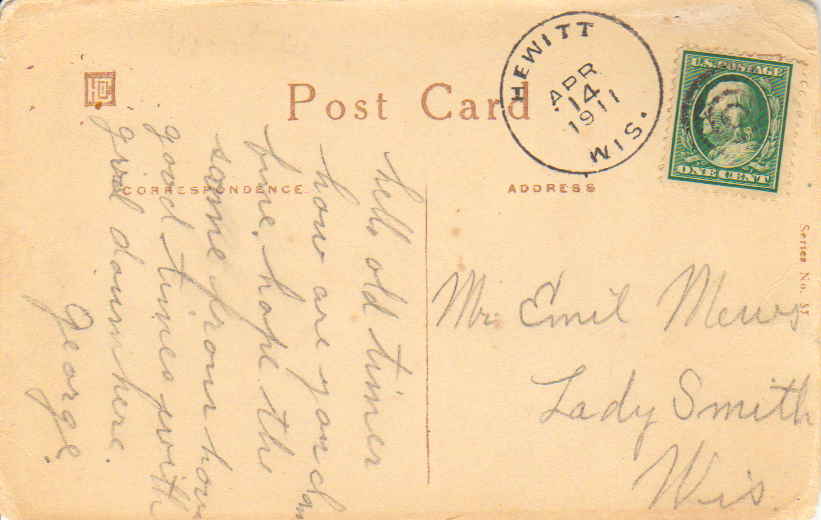 Post Card
HEWITT
APR
14
1911
WIS.
U.S. POSTAGE
ONE CENT
CORRESPONDENCE
ADDRESS
Series No.
hello old timer
how are you I am
fine. hope the
same from
good times with
girl down here.
George.
Mr. Emil Mews
Lady Smith
Wis.